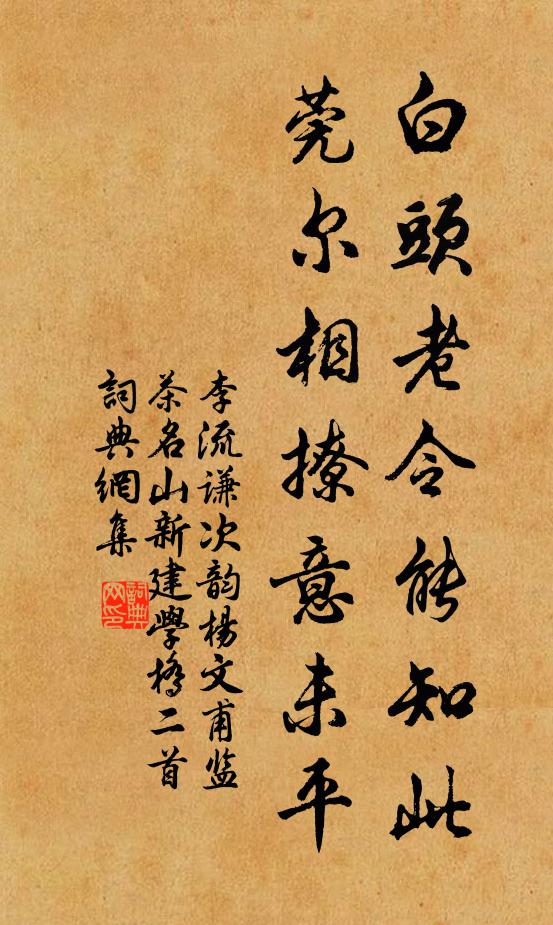 白頭老令能知此
莞尔相撩意未平
李流谦次韵楊文甫监
茶名山新建學橋二首
詞典網集
詞典
网印